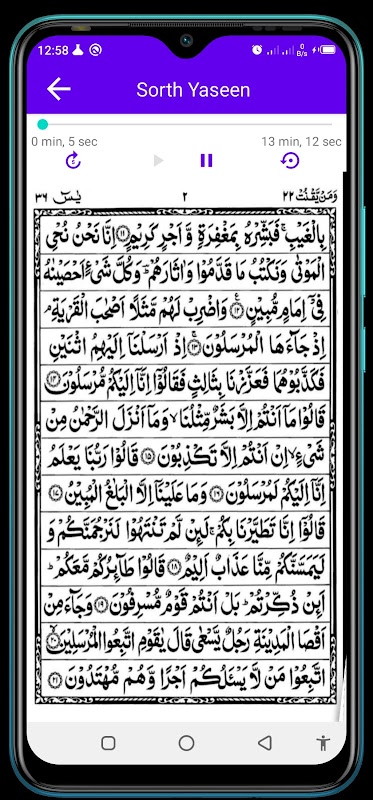 12:58
0 B/s
Sorth Yaseen
0 min, 5 sec
13 min, 12 sec
5
يٰسٓ ٣٦
٢
وَمَنْ يَّقْنُتْ ٢٢
بِالْغَيْبِ ۚ فَبَشِّرْهُ بِمَغْفِرَةٍ وَّ اَجْرٍ كَرِيْمٍ ﴿١١﴾ اِنَّا نَحْنُ نُحْیِ
الْمَوْتٰى وَنَكْتُبُ مَا قَدَّمُوْا وَاٰثَارَهُمْ ؕ وَكُلَّ شَیْءٍ اَحْصَيْنٰهُ
فِیْۤ اِمَامٍ مُّبِيْنٍ ﴿١٢﴾ وَاضْرِبْ لَهُمْ مَّثَلًا اَصْحٰبَ الْقَرْيَةِ ۘ
اِذْ جَآءَهَا الْمُرْسَلُوْنَ ﴿١٣﴾ اِذْ اَرْسَلْنَاۤ اِلَيْهِمُ اثْنَيْنِ
فَكَذَّبُوْهُمَا فَعَزَّزْنَا بِثَالِثٍ فَقَالُوْۤا اِنَّاۤ اِلَيْكُمْ مُّرْسَلُوْنَ ﴿١٤﴾
قَالُوْا مَاۤ اَنْتُمْ اِلَّا بَشَرٌ مِّثْلُنَا ۙ وَمَاۤ اَنْزَلَ الرَّحْمٰنُ مِنْ
شَیْءٍ ۙ اِنْ اَنْتُمْ اِلَّا تَكْذِبُوْنَ ﴿١٥﴾ قَالُوْا رَبُّنَا يَعْلَمُ
اِنَّاۤ اِلَيْكُمْ لَمُرْسَلُوْنَ ﴿١٦﴾ وَمَا عَلَيْنَاۤ اِلَّا الْبَلٰغُ الْمُبِيْنُ ﴿١٧﴾
قَالُوْۤا اِنَّا تَطَيَّرْنَا بِكُمْ ۚ لَئِنْ لَّمْ تَنْتَهُوْا لَنَرْجُمَنَّكُمْ وَ
لَيَمَسَّنَّكُمْ مِّنَّا عَذَابٌ اَلِيْمٌ ﴿١٨﴾ قَالُوْا طَآئِرُكُمْ مَّعَكُمْ ؕ
اَئِنْ ذُكِّرْتُمْ ؕ بَلْ اَنْتُمْ قَوْمٌ مُّسْرِفُوْنَ ﴿١٩﴾ وَجَآءَ مِنْ
اَقْصَا الْمَدِيْنَةِ رَجُلٌ يَّسْعٰى قَالَ يٰقَوْمِ اتَّبِعُوا الْمُرْسَلِيْنَ ﴿٢٠﴾
اتَّبِعُوْا مَنْ لَّا يَسْـَٔلُكُمْ اَجْرًا وَّهُمْ مُّهْتَدُوْنَ ﴿٢١﴾